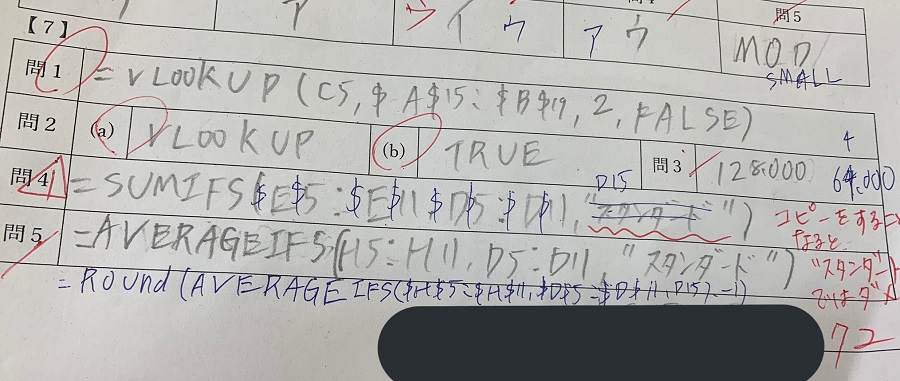 問5
【7】
ア イ ウ ア ウ MOD
SMALL
問1 =VLOOKUP(C5,$A$15:$B$19,2,FALSE)
問2 (a) VLOOKUP (b) TRUE 問3 128,000 64,000
4
D15
問4 =SUMIFS($E$5:$E$11 $D$5:$D$11,"スタンダード")
コピーをすること
なると
"スタンダード
ではダメ
問5 =AVERAGEIFS(H5:H11, D5:D11,"スタンダード")
=ROUnd(AVERAGEIFS($H$5:$H$11,$D$5:$D$11,D15),-1)
72